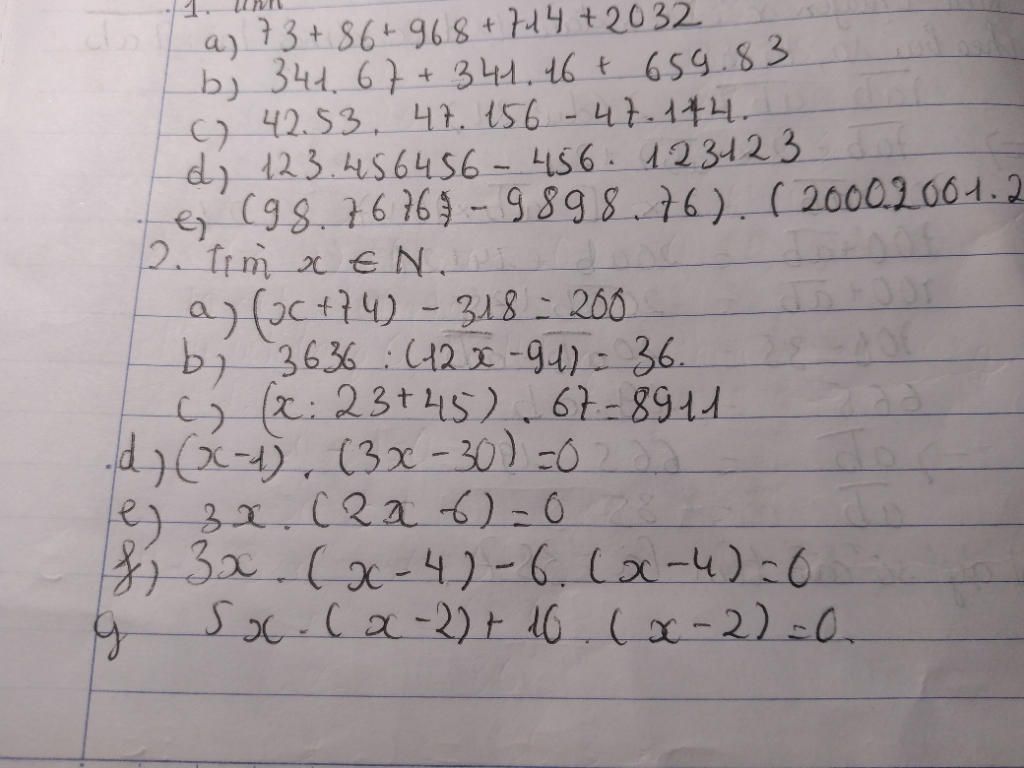 1. tính
a) 73 + 86 + 968 + 714 + 2032
b) 341. 67 + 341. 16 + 659. 83
c) 42.53. 47. 156 - 47. 114.
d) 123. 456456 - 456. 123123
e) (98. 7676 - 9898. 76). (2000.2001.2
2. Tìm x ∈ N.
a) (x + 74) - 318 = 200
b) 3636 : (12x - 91) = 36.
c) (x : 23 + 45). 67 = 8911
d) (x - 1). (3x - 30) = 0
e) 3x. (2x - 6) = 0
f) 3x. (x - 4) - 6. (x - 4) = 0
g 5x. (x - 2) + 10. (x - 2) = 0.